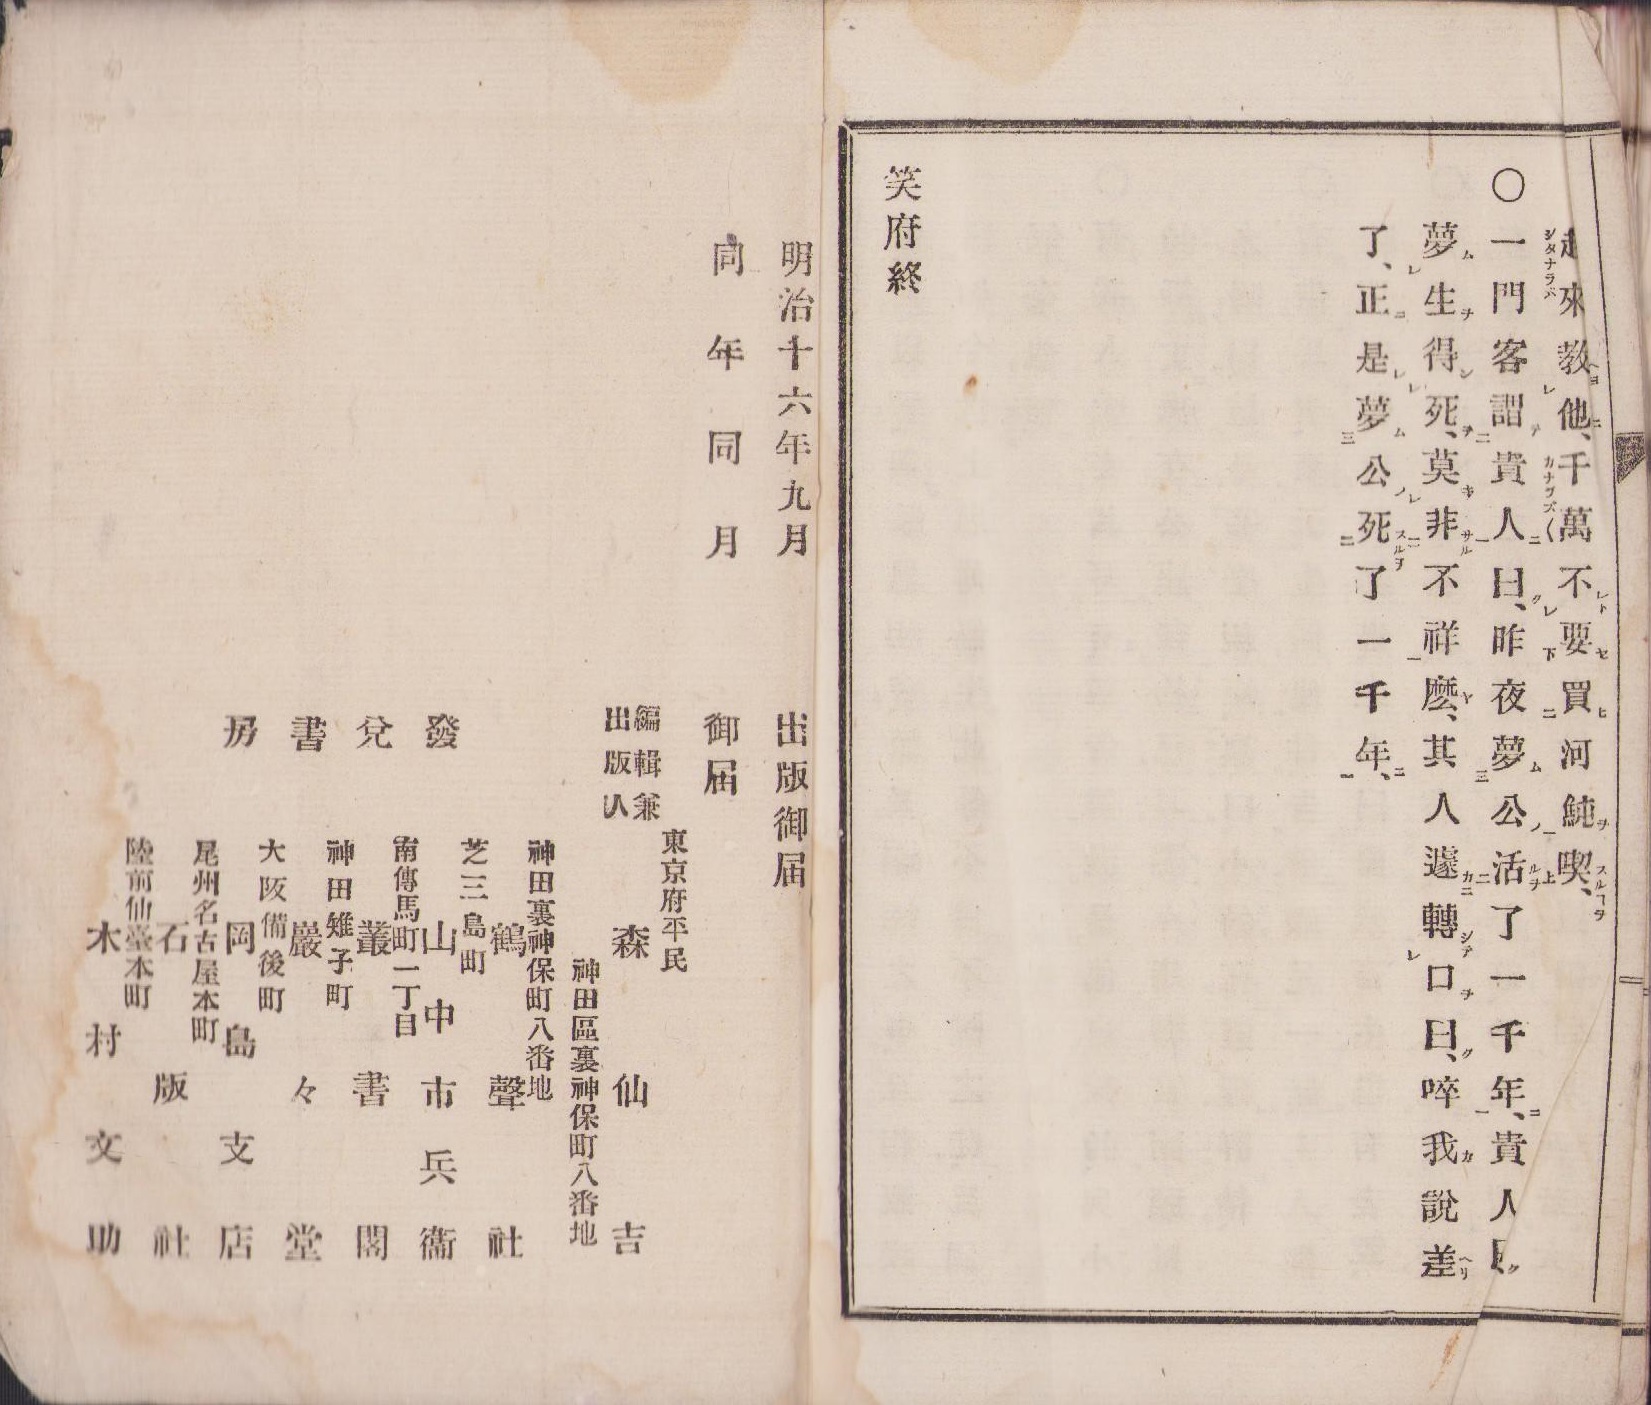 起來教他、千萬不要買河魨喫、
〇一門客謂貴人曰、昨夜夢公活了一千年、貴人曰、
夢生得死、莫非不祥麽、其人遽轉口曰、啐我說差
了、正是夢公死了一千年、
笑府終
明治十六年九月 出版御届
同年同月 御届
編輯兼
出版人
東京府平民
森仙吉
神田區裏神保町八番地
發兌書房
神田裏神保町八番地
鶴聲社
芝三島町
山中市兵衞
南傳馬町一丁目
叢書閣
神田雉子町
巖々堂
大阪備後町
岡島支店
尾州名古屋本町
石版社
陸前仙臺本町
木村文助